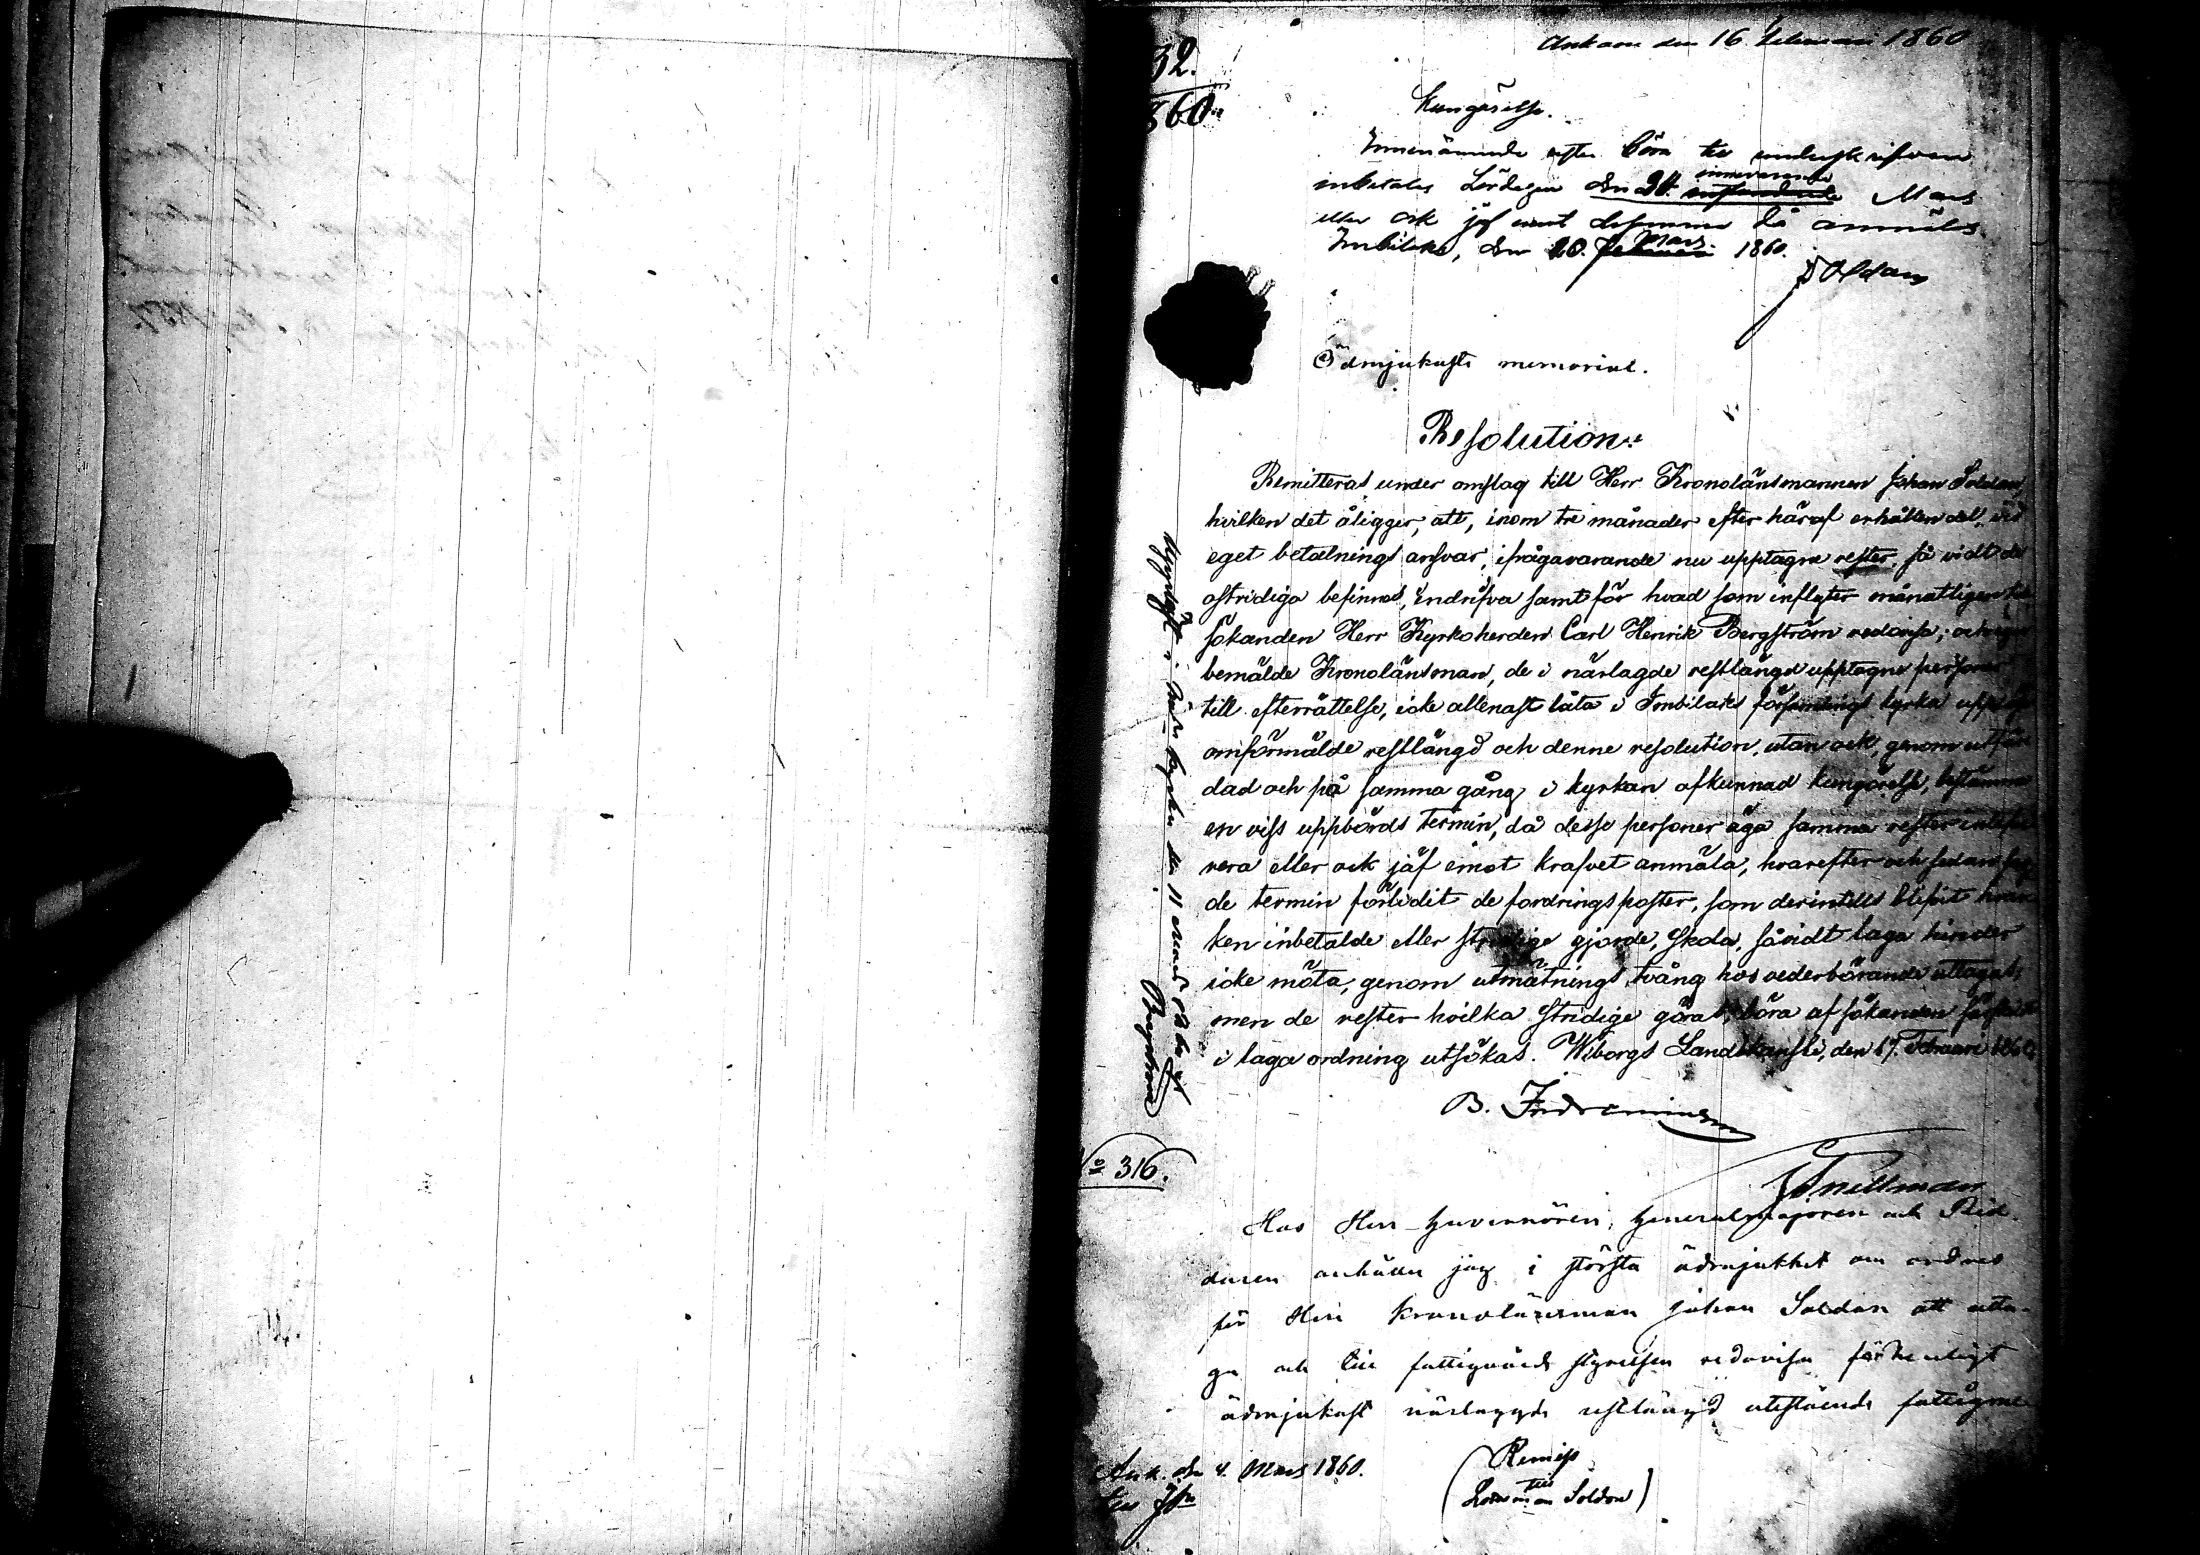 Ankom den 16 Februari 1860
32.
860.
Kungörelse.
Innenämnde rester böra till underskrifven
innevarande
inbetalas Lördagen den 24. Mars
eller ock jäf emot desamma då anmälas
Mars
Imbilaks, den 10. Februari 1860.
J Soldan
Ödmjukaste memorial.
Resolution:
Remitteras under omslag till Herr Kronolänsmannen Johan Soldan,
hvilken det åligger, att, inom tre månader efter häraf erhållen del, vid
eget betalnings ansvar, ifrågavarande nu upptagne rester, så vidt de
ostridiga befinnas, indrifva samt för hvad som inflyter månatligen till
sökanden Herr Kyrkoherden Carl Henrik Bergström redovisa; och
bemälde Kronolänsman, de i närlagde restlängd upptagne personer
till efterrättelse, icke allenast låta i Imbilaks församlings kyrka
omförmälde restlängd och denne resolution, utan ock, genom utfär
dad och på samma gång i kyrkan afkunnad kungörelse, bestämma
en viss uppbörds termin, då desse personer äga samma rester inle
vera eller ock jäf emot krafvet anmäla, hvarefter och sedan
de termin förlidit de fordringsposter, som derintills blifvit hvar
ken inbetalde eller stridige gjorde, skola, såvidt laga hinder
icke möta, genom utmätnings tvång hos vederbörande uttagas,
men de rester hvilka stridige göras, böra af sökanden
i laga ordning utsökas. Wiborgs Landskansli, den 17. Februari 1860.
B. Indrenius
Snellman
kyrka den 11 Mars
Bergström
No 316.
Hos Herr Guvernören, Generalmajoren och Rid
daren anhåller jag i största ödmjukhet om ordres
för Herr Kronolänsman Johan Soldan att utta-
ga och till fattigvårds styrelsen redovisa
ödmjukast närlaggde restlängd utestående
Ank. den 4. Mars 1860.
Remiss
till
Länsman Soldan